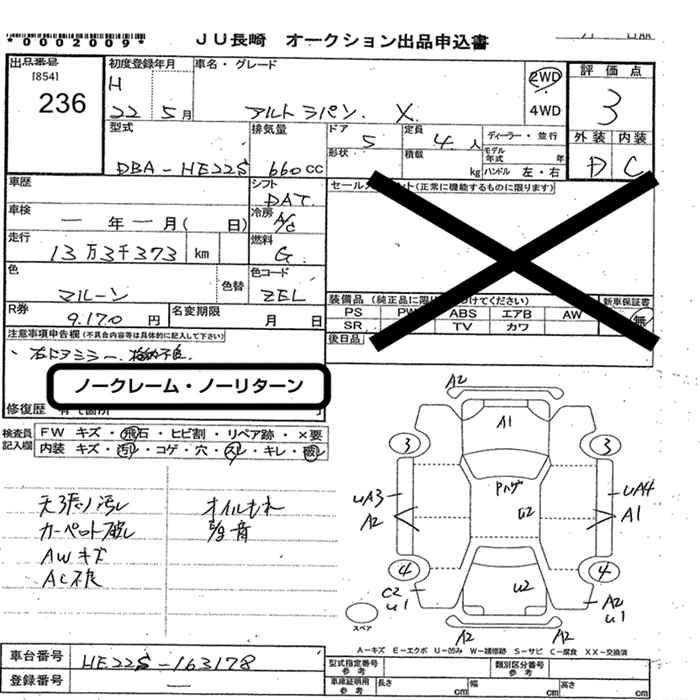 *0002009*
JU長崎 オークション出品申込書
出品番号
[854]
236
初度登録年月
H
22 5月
車名・グレード
アルト ラパン X
2WD
4WD
評価点
3
外装 内装
D C
型式
DBA-HE22S
排気量
660cc
ドア
5
定員
4人
ディーラー・並行
形状
積載
kg
モデル年式 年
ハンドル 左・右
車歴
シフト
DAT
セールスポイント(正常に機能するものに限ります)
車検
一 年 一 月( 日)
冷房
A/C
走行
13万3千373 km
燃料
G
色
マルーン
色替
色コード
ZEL
装備品(純正品に限り つけてください) 新車保証書
PS PW ABS エアB AW 無
SR TV カワ
R券
9.170円
名変期限
月 日
後日品
注意事項申告欄(不具合内容等は具体的に記入して下さい)
右ドアミラー 格納不良
ノークレーム・ノーリターン
修復歴
検査員記入欄
FW キズ・飛石・ヒビ割・リペア跡・×要
内装 キズ・汚れ・コゲ・穴・スレ・キレ・破れ
天張り汚れ オイルもれ
カーペット破れ 異音
AWキズ
AC不良
A2
A1
3 3
Pハゲ
UA3 U2 UA4
A2 A1
4 4
C2 U1 U2 A2 U1
A2 A2
スペア
A-キズ E-エクボ U-凹み W-補修跡 S-サビ C-腐食 XX-交換済
車台番号
HE22S-163178
登録番号
一
型式指定番号 参考
類別区分番号 参考
車庫証明用 参考
長さ cm 幅 cm 高さ cm